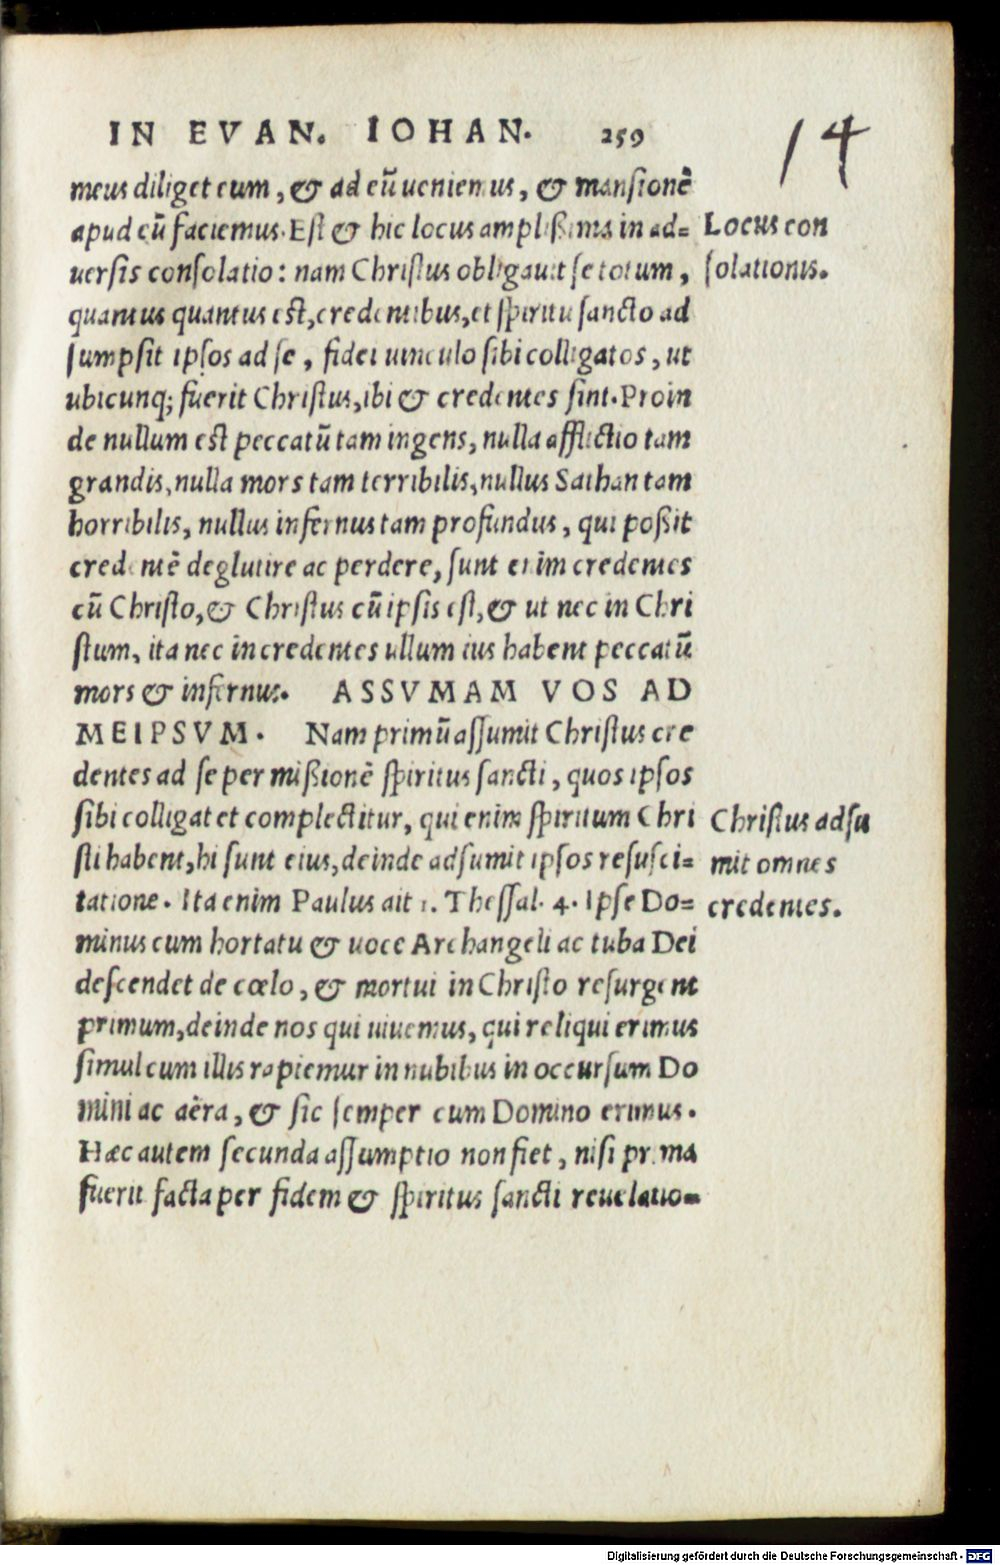 IN EVAN. IOHAN. 259
14
meus diliget eum, & ad eũ ueniemus, & mansionẽ
apud eũ faciemus. Est & hic locus amplißima in ad=
uersis consolatio: nam Christus obligauit se totum,
quantus quantus est, credentibus, et spiritu sancto ad
sumpsit ipsos ad se, fidei uinculo sibi colligatos, ut
ubicunq; fuerit Christus, ibi & credentes sint. Proin
de nullum est peccatũ tam ingens, nulla afflictio tam
grandis, nulla mors tam terribilis, nullus Sathan tam
horribilis, nullus infernus tam profundus, qui poßit
credentẽ deglutire ac perdere, sunt enim credentes
cũ Christo, & Christus cũ ipsis est, & ut nec in Chri
stum, ita nec in credentes ullum ius habent peccatũ
mors & infernus. ASSVMAM VOS AD
MEIPSVM. Nam primũ assumit Christus cre
dentes ad se per mißionẽ spiritus sancti, quos ipsos
sibi colligat et complectitur, qui enim spiritum Chri
sti habent, hi sunt eius, deinde adsumit ipsos resusci=
tatione. Ita enim Paulus ait 1. Thessal. 4. Ipse Do=
minus cum hortatu & uoce Archangeli ac tuba Dei
descendet de cœlo, & mortui in Christo resurgent
primum, deinde nos qui uiuemus, qui reliqui erimus
simul cum illis rapiemur in nubibus in occursum Do
mini ac aëra, & sic semper cum Domino erimus.
Hæc autem secunda assumptio non fiet, nisi prima
fuerit facta per fidem & spiritus sancti reuelatio=
Locus con
solationis.
Christus adsu
mit omnes
credentes.
Digitalisierung gefördert durch die Deutsche Forschungsgemeinschaft - DFG